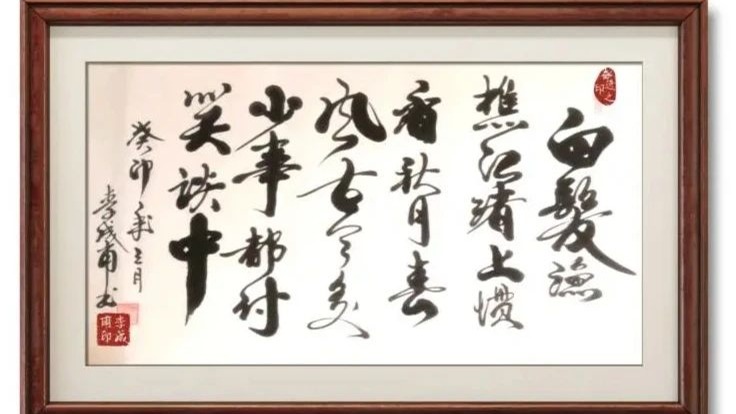 白髮漁
樵江渚上慣
看秋月春
風古今多
少事都付
笑談中
癸卯年三月
李成甫书
李成甫印